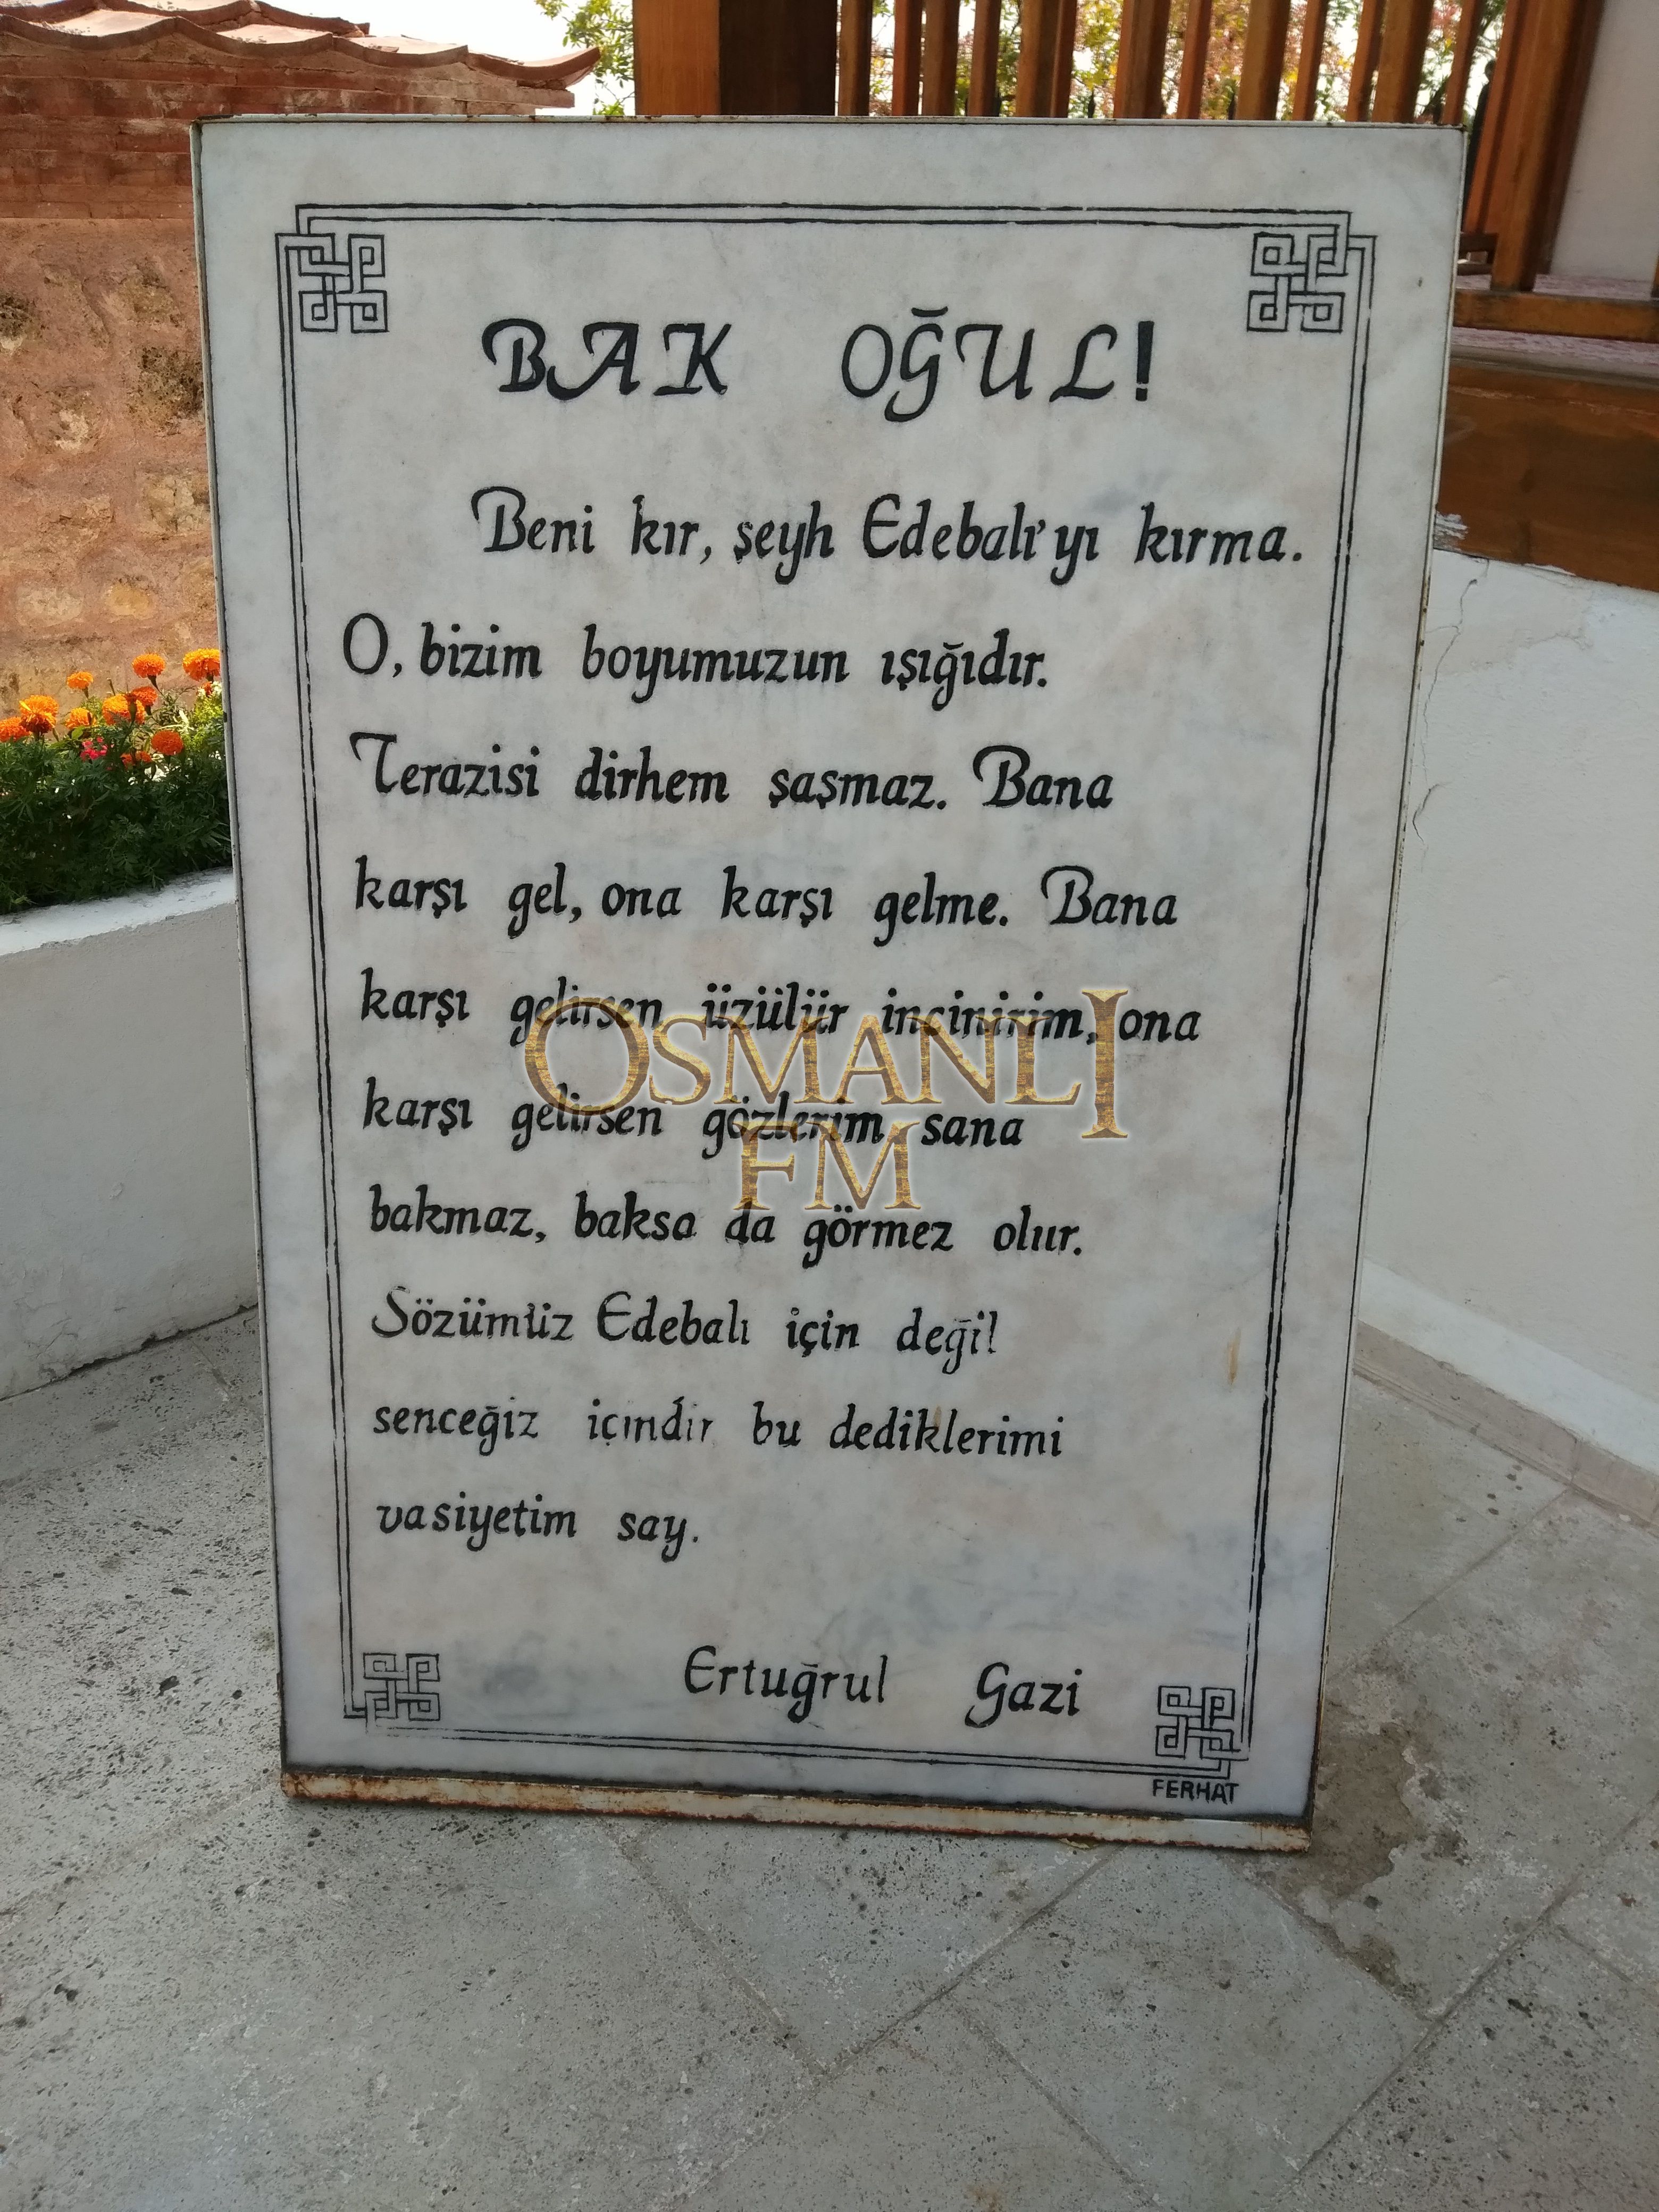 BAK OĞUL!
Beni kır, şeyh Edebalı'yı kırma.
O, bizim boyumuzun ışığıdır.
Terazisi dirhem şaşmaz. Bana
karşı gel, ona karşı gelme. Bana
karşı gelirsen üzülür incinirim, ona
karşı gelirsen gözlerim sana
bakmaz, baksa da görmez olur.
Sözümüz Edebalı için değil
senceğiz içindir bu dediklerimi
vasiyetim say.
Ertuğrul Gazi
FERHAT
OSMANLI
FM